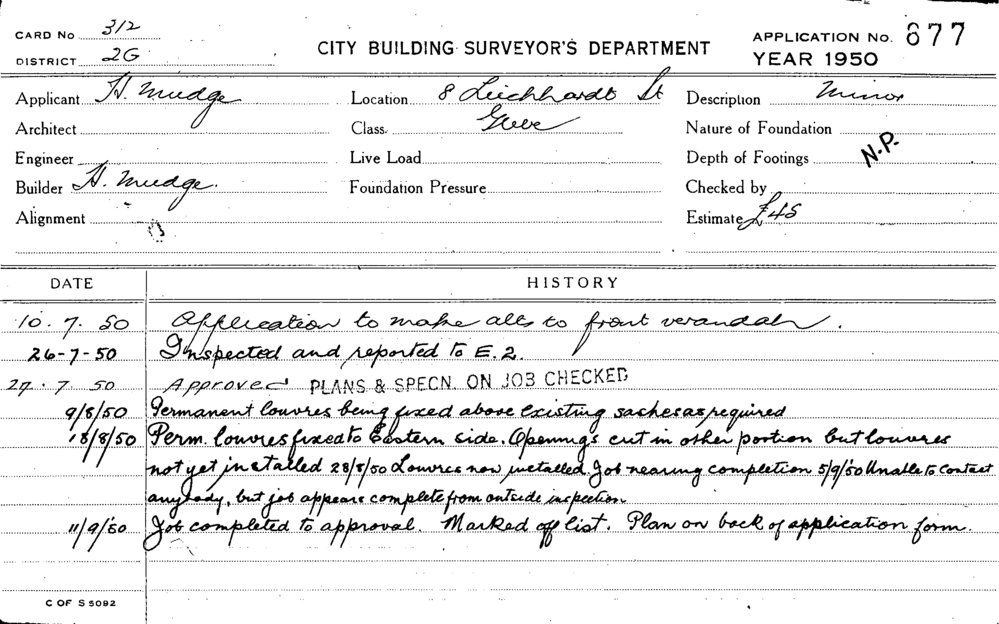 CARD No 312
DISTRICT 2G
CITY BUILDING SURVEYOR'S DEPARTMENT
APPLICATION No. 677
YEAR 1950
Applicant H. Mudge
Location 8 Leichhardt St
Description Minor
Architect
Class
Nature of Foundation
Engineer
Live Load
Depth of Footings N.P.
Builder H. Mudge.
Foundation Pressure
Checked by
Alignment
Estimate £45
DATE HISTORY
10. 7. 50 Application to make alts to front verandah.
26-7-50 Inspected and reported to E.2.
27. 7 50 Approved PLANS & SPECN. ON JOB CHECKED
9/8/50 Permanent louvres being fixed above existing sashes as required
18/8/50 Perm. louvres fixed to Eastern side. Openings cut in other portion but louvres
not yet installed 28/8/50 Louvres now installed. Job nearing completion 5/9/50 Unable to contact
anybody, but job appears complete from outside inspection
11/9/50 Job completed to approval. Marked off list. Plan on back of application form.
C OF S 5092